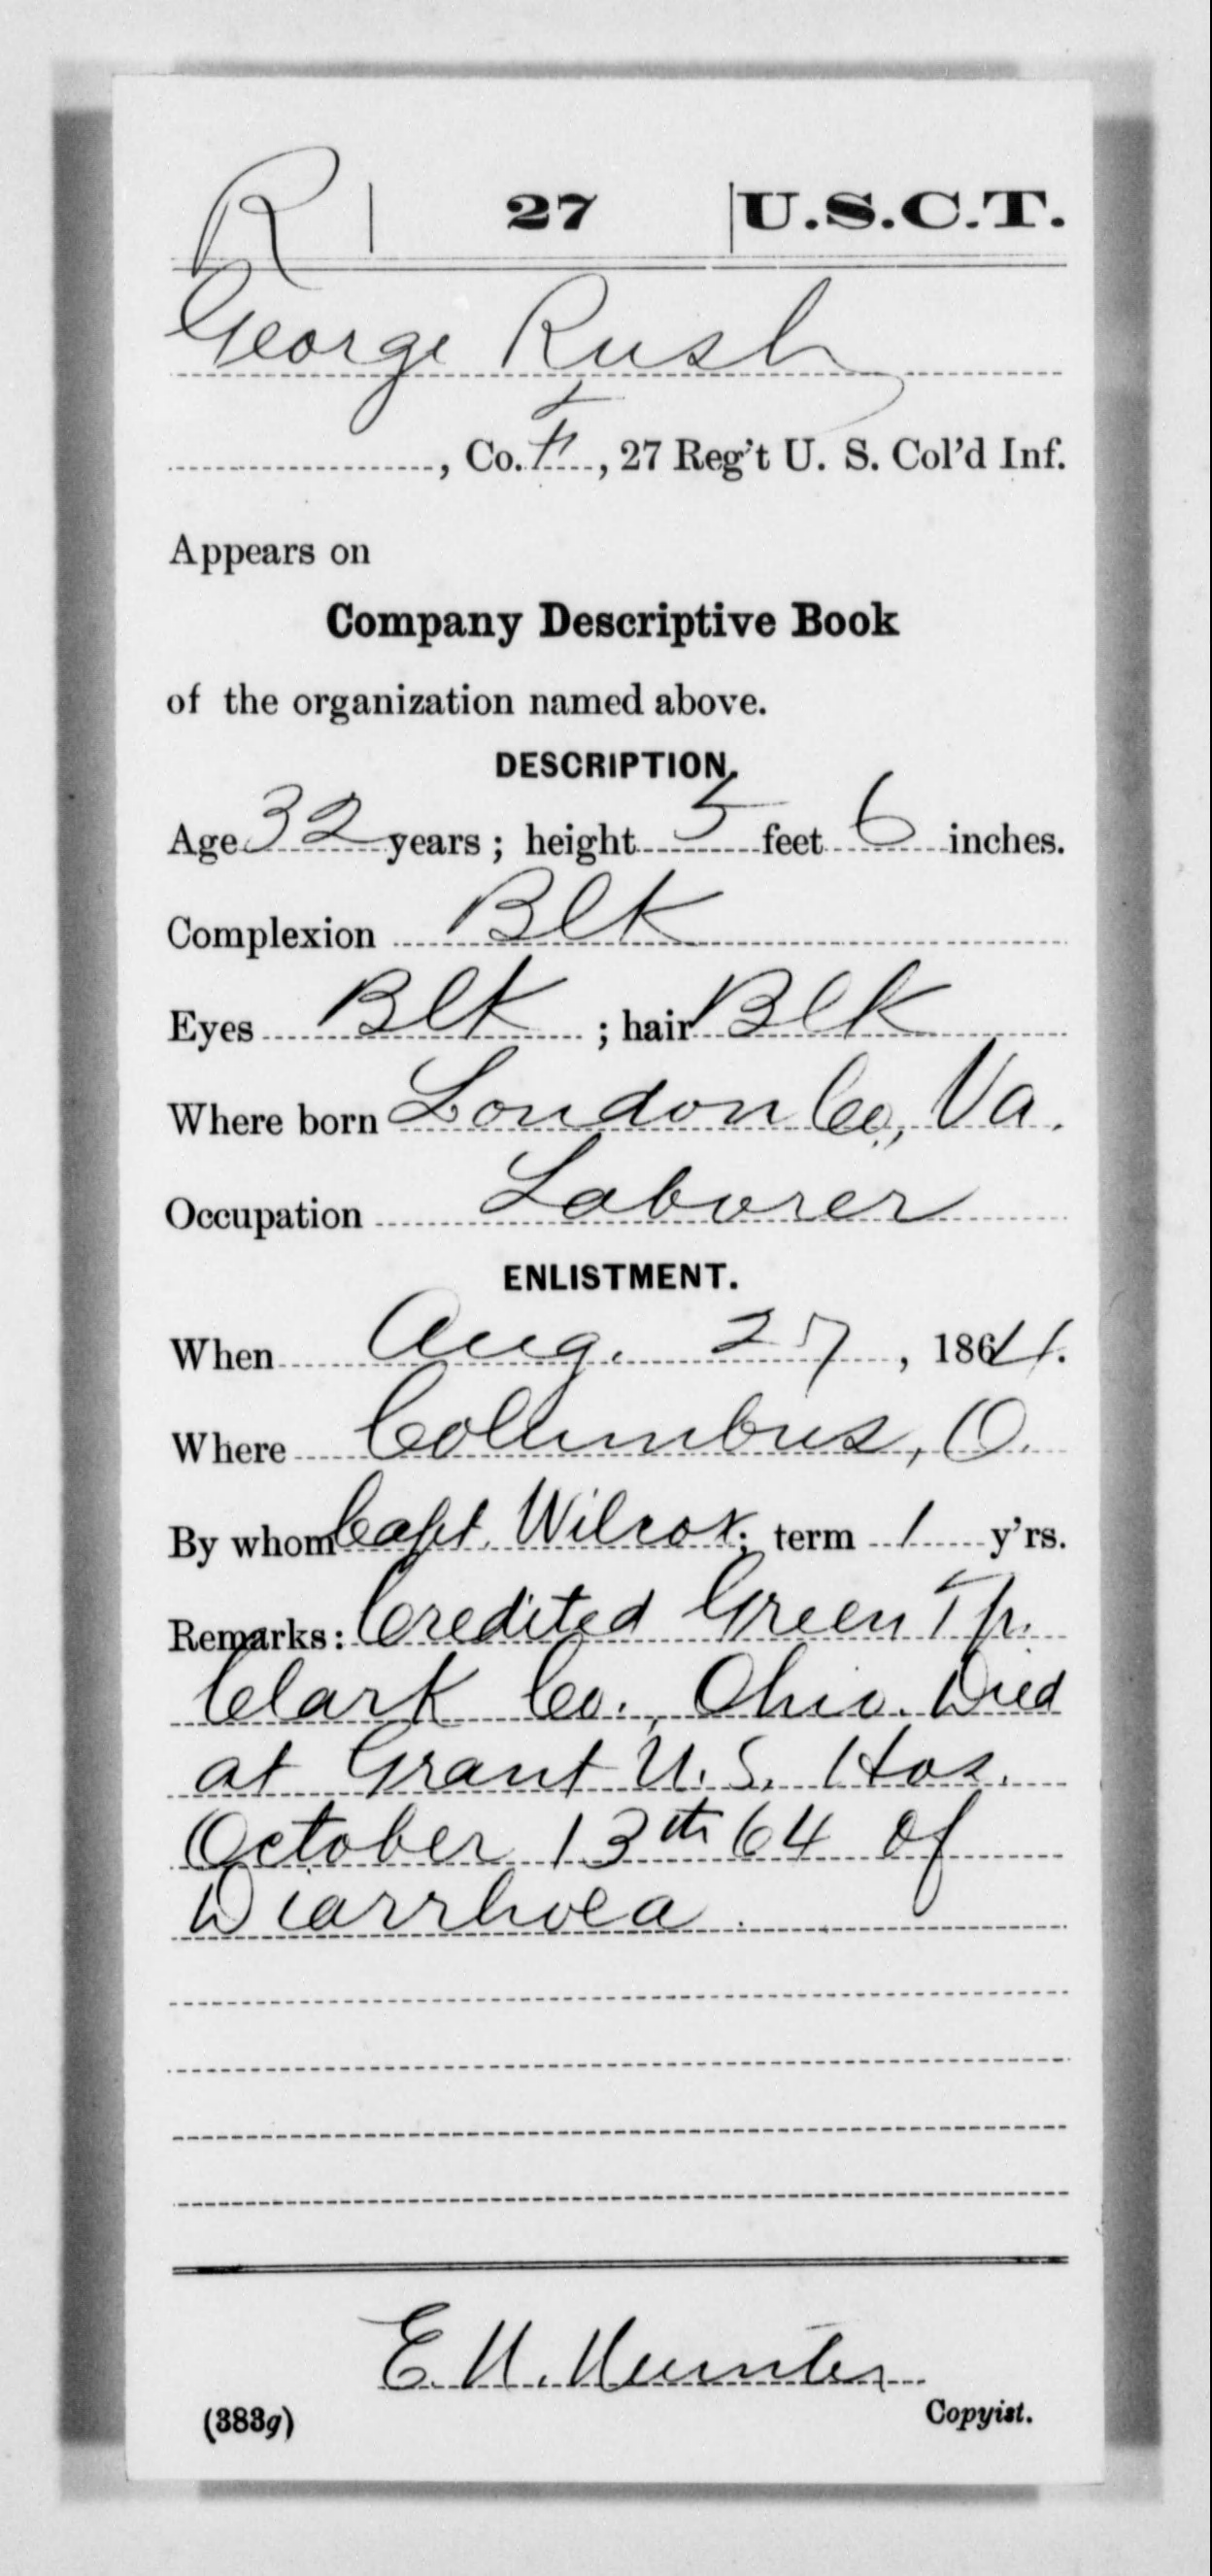 R | 27 | U.S.C.T.
George Rush
, Co. F, 27 Reg't U. S. Col'd Inf.
Appears on
Company Descriptive Book
of the organization named above.
DESCRIPTION.
Age 32 years; height 5 feet 6 inches.
Complexion Blk
Eyes Blk ; hair Blk
Where born London Co., Va.
Occupation Laborer
ENLISTMENT.
When Aug. 27, 1864.
Where Columbus, O.
By whom Capt. Wilcox; term 1 y'rs.
Remarks: Credited Green Tp.
Clark Co., Ohio. Died
at Grant U.S. Hos.
October 13th 64 of
Diarrhoea.
E.
(383g) Copyist.